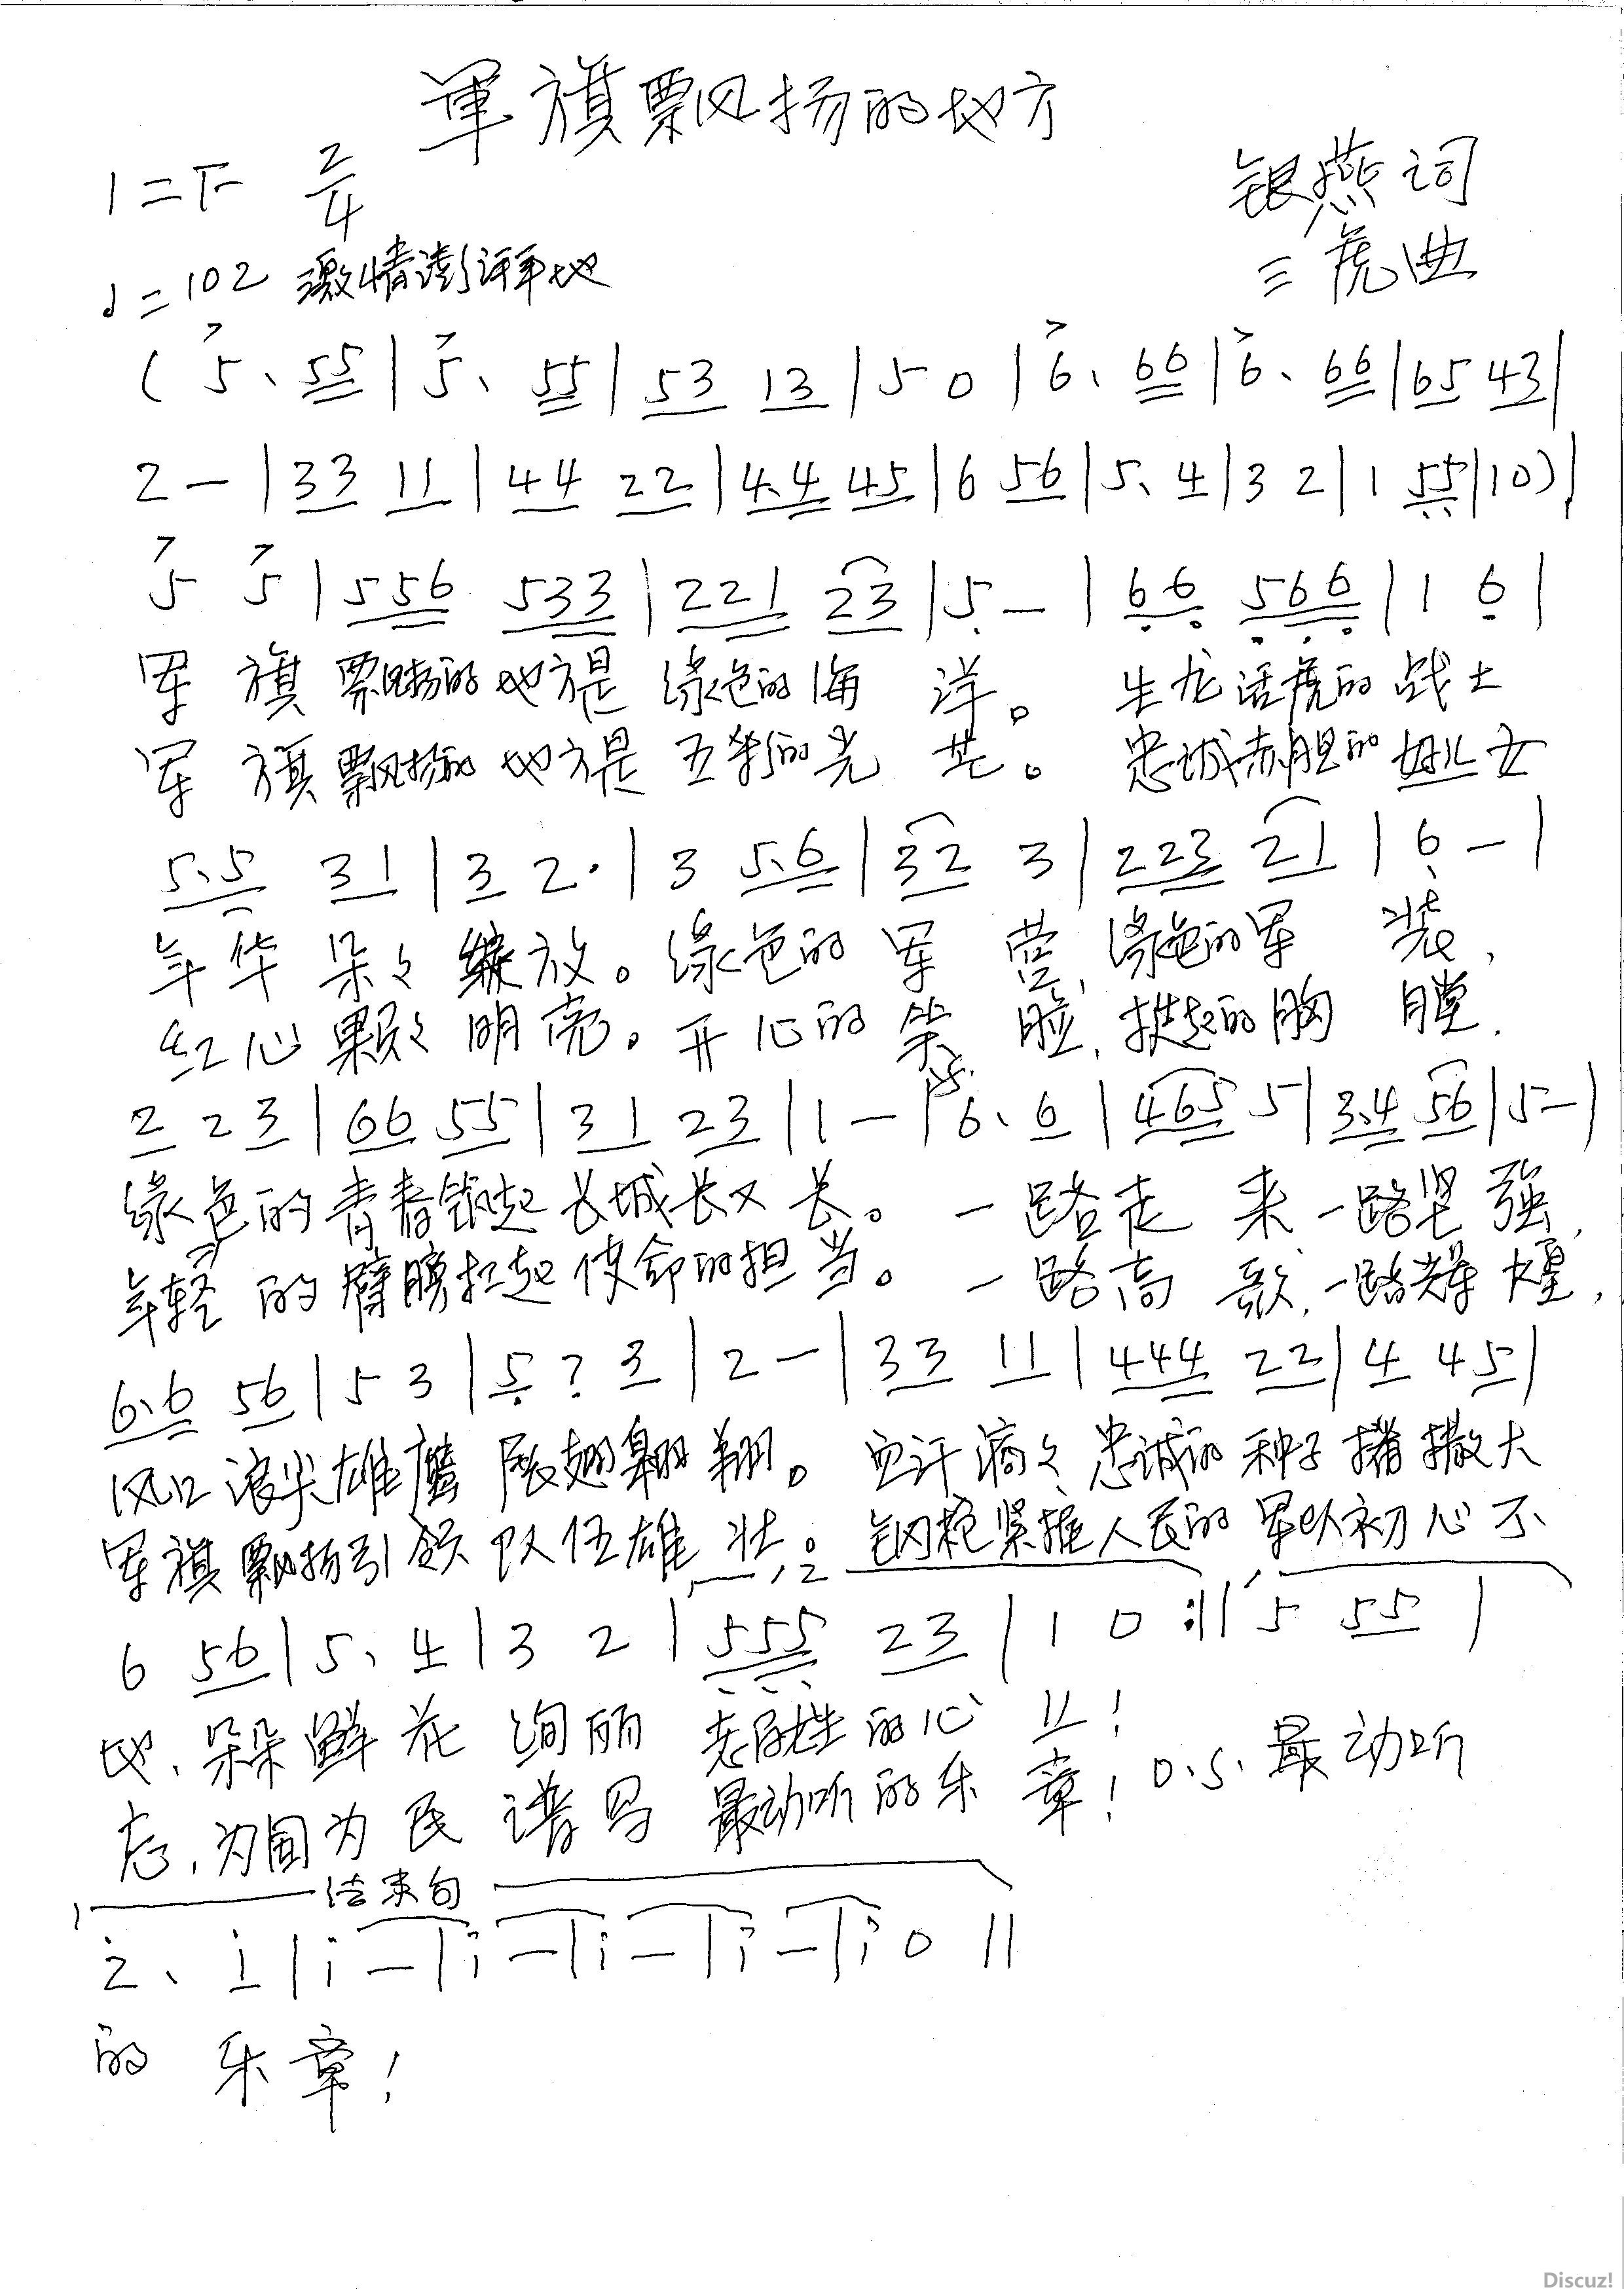 軍旗飘扬的地方
1=F 2/4
银燕词
♩=102 激情澎湃地
三虎曲
(5、55|5、55|53 13|5 0|6、66|6、66|65 43|
2-|33 11|44 22|4.4 45|6 56|5、4|3 2|1 55|10)|
5 5|556 533|221 23|5-|66 566|1 6|
军旗飘扬的地方是绿色的海洋。生龙活虎的战士
军旗飘扬的地方是五彩的光芒。忠诚赤胆的好儿女
5.5 31|3 2·|3 5.6|32 3|223 21|6-|
年华朵々绽放。绿色的军营,绿色的军装,
红心颗々明亮。开心的笑脸,挺起的胸膛,
2 2 3|66 55|31 23|1-|6、6|465 5|3.4 56|5-|
绿色的青春筑起长城长又长。一路走来一路坚强,
年轻的臂膀扛起使命的担当。一路高歌,一路辉煌,
6.6 56|5 3|5 ? 3|2-|33 11|444 22|4 45|
风口浪尖雄鹰展翅翱翔。血汗滴々忠诚的种子播撒大
军旗飘扬引领队伍雄壮。钢枪紧握人民的军队初心不
1.2
6 56|5、4|3 2|555 23|1 0:||5 55|
地,朵朵鲜花绚丽老百姓的心上!
忘,为国为民谱写最动听的乐章!D.S.最动听
结束句
2、1|i-|i-|i-|i-|i 0||
的乐章!
Discuz!